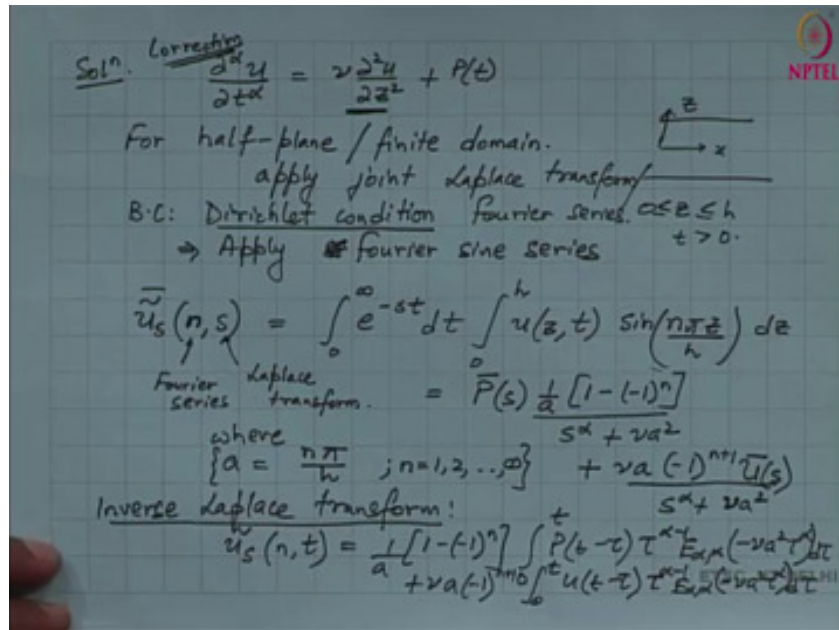 Correction
Solⁿ. ∂^α u / ∂t^α = ν ∂²u / ∂z² + P(t)
NPTEL
For half-plane / finite domain.
z
x
apply joint Laplace transform /
B.C: Dirichlet condition fourier series. 0 ≤ z ≤ h
t > 0.
⇒ Apply fourier sine series
ũ̄_s (n, s) = ∫_0^∞ e^{-st} dt ∫_0^h u(z, t) sin(nπz/h) dz
Fourier series Laplace transform.
= P̄(s) 1/a [1-(-1)^n] / (s^α + νa²)
where
{a = nπ/h ; n=1,2, .., ∞} + νa (-1)^{n+1} Ū(s) / (s^α + νa²)
Inverse Laplace transform:
ũ_s (n, t) = 1/a [1-(-1)^n] ∫_0^t P(t-τ) τ^{α-1} E_{α,α}(-νa²τ^α) dτ
+ νa(-1)^{n+1} ∫_0^t U(t-τ) τ^{α-1} E_{α,α}(-νa²τ^α) dτ